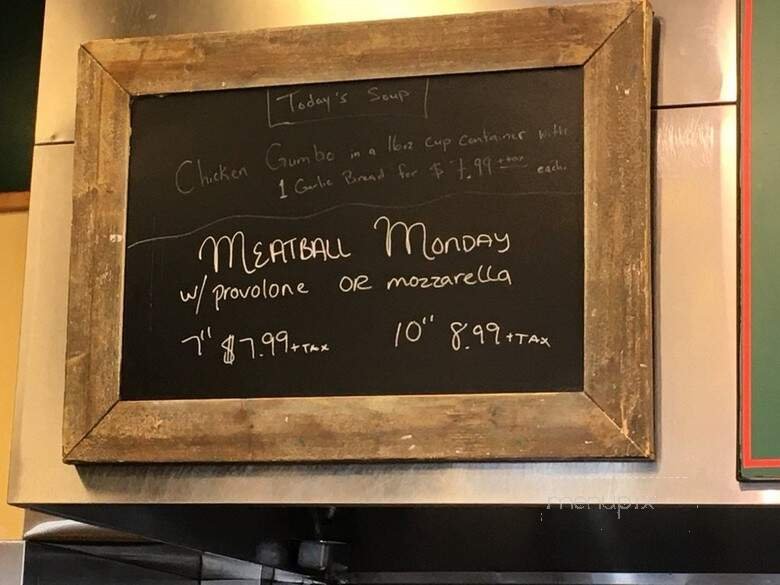 Today's Soup
Chicken Gumbo in a 16oz cup container with
1 Garlic Bread for $7.99 +tax each.
MEATBALL MONDAY
w/ provolone OR mozzarella
7" $7.99 +TAX 10" 8.99 +TAX
menupix